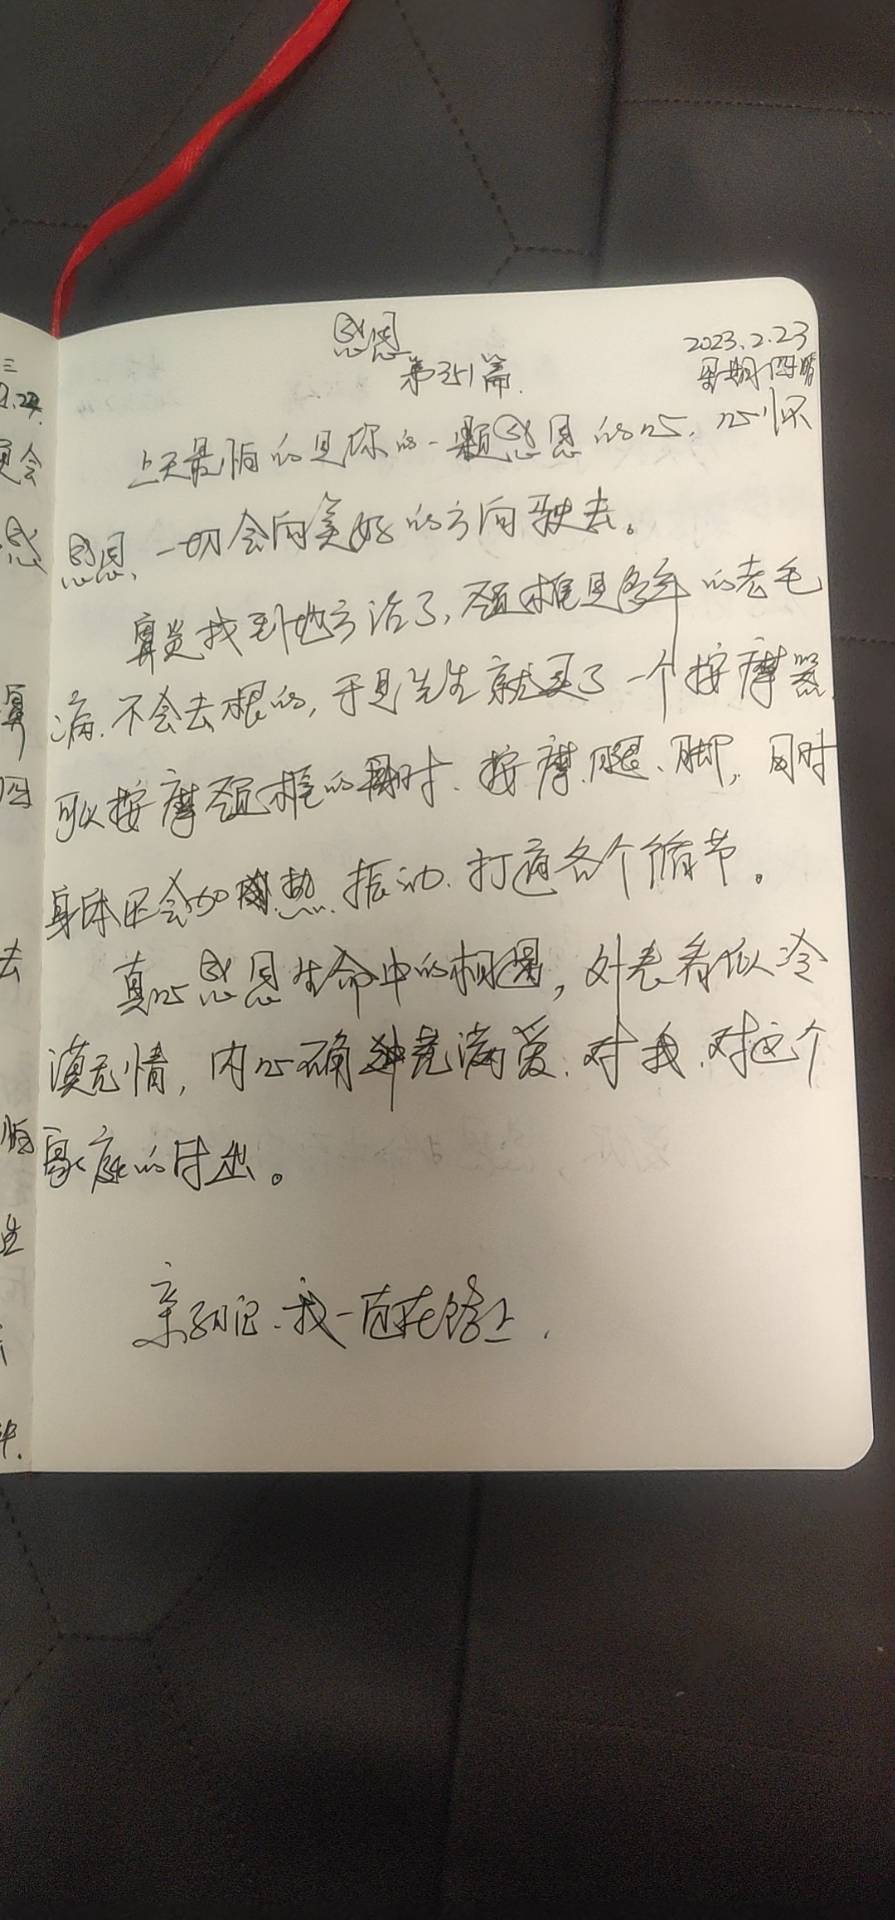 感恩
第351篇.
2023.2.23
星期四晴
上天最怕的是你的一颗感恩的心, 心怀
感恩, 一切会向美好的方向驶去。
鼻炎找到地方治了, 颈椎是多年的老毛
病, 不会去根的, 于是先生就买了一个按摩器,
可以按摩颈椎的同时, 按摩腿、脚, 同时
身体还会加热, 振动, 打通各个循节。
真心感恩生命中的相遇, 外表看似冷
漠无情, 内心确充满爱, 对我, 对这个
家庭的付出。
亲们, 我一直在路上.